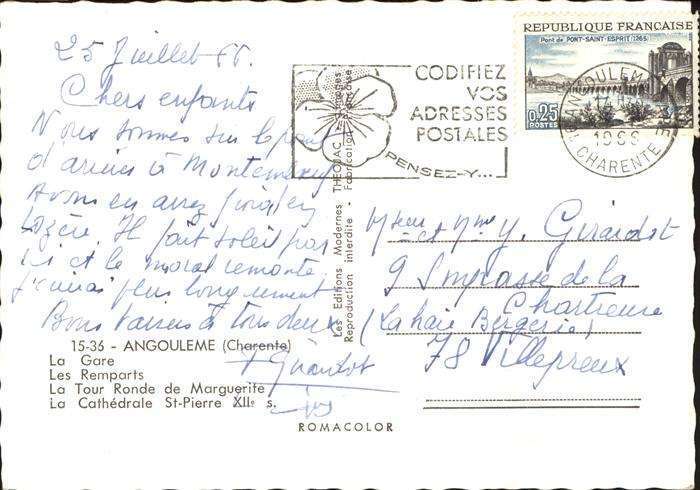 25 Juillet 66.
Chers enfants
Nous sommes sur le point
d'arriver à
Avons eu assez
Lozère. Il fait soleil par
ici et le moral remonte.
J'écrirai plus longuement
Bons baisers à tous deux
15-36 - ANGOULEME (Charente)
La Gare
Les Remparts
La Tour Ronde de Marguerite
La Cathédrale St-Pierre XIIe s.
ROMACOLOR
Les Editions Modernes - THEOJAC - Limoges
Reproduction interdite - Fabrication Française
CODIFIEZ
VOS
ADRESSES
POSTALES
PENSEZ-Y...
REPUBLIQUE FRANÇAISE
Pont de PONT-SAINT-ESPRIT/1265
0,25
POSTES
ANGOULEME
1966
CHARENTE
et Mme Y. Girardot
9 Impasse de la
Chartreuse
(La haie Bergerie)
78 Villepreux